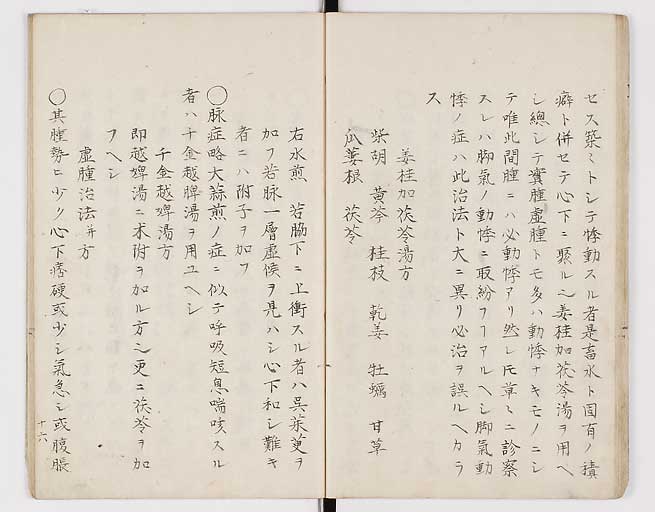 セス築々トシテ悸動スル者是畜水ト固有ノ積
癖ト併セテ心下ニ聚ル也姜桂加茯苓湯ヲ用ヘ
シ總シテ實腫虚腫トモ多ハ動悸ナキモノニシ
テ唯此間腫ニハ必動悸アリ然レ𪜈草々ニ診察
スレハ脚氣ノ動悸ニ取紛フヿアルヘシ脚氣動
悸ノ症ハ此治法ト大ニ異リ必治ヲ誤ルヘカラ
ス
姜桂加茯苓湯方
柴胡 黄芩 桂枝 乾姜 牡蠣 甘草
瓜蔞根 茯苓
右水煎 若脇下ニ上衝スル者ハ呉茱萸ヲ
加フ若脉一層虚候ヲ見ハシ心下和シ難キ
者ニハ附子ヲ加フ
○脉症略大蒜煎ノ症ニ似テ呼吸短息喘咳スル
者ハ千金越脾湯ヲ用ユヘシ
千金越婢湯方
即越婢湯ニ朮附ヲ加ル方也更ニ茯苓ヲ加
フヘシ
虚腫治法并方
○其腫勢ヒ少ク心下痞硬或少シ氣急シ或腹脹
十六